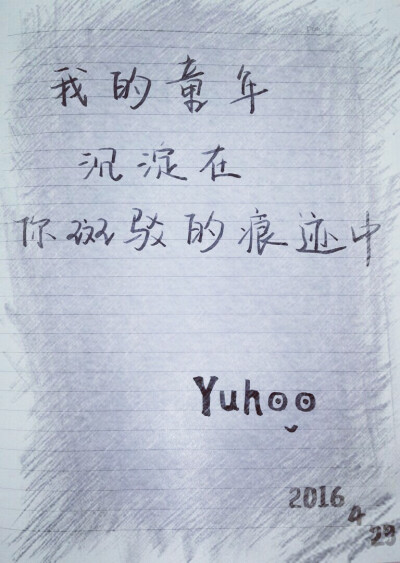 我的童年
沉淀在
你斑驳的痕迹中
Yuhoo
2016
4
29